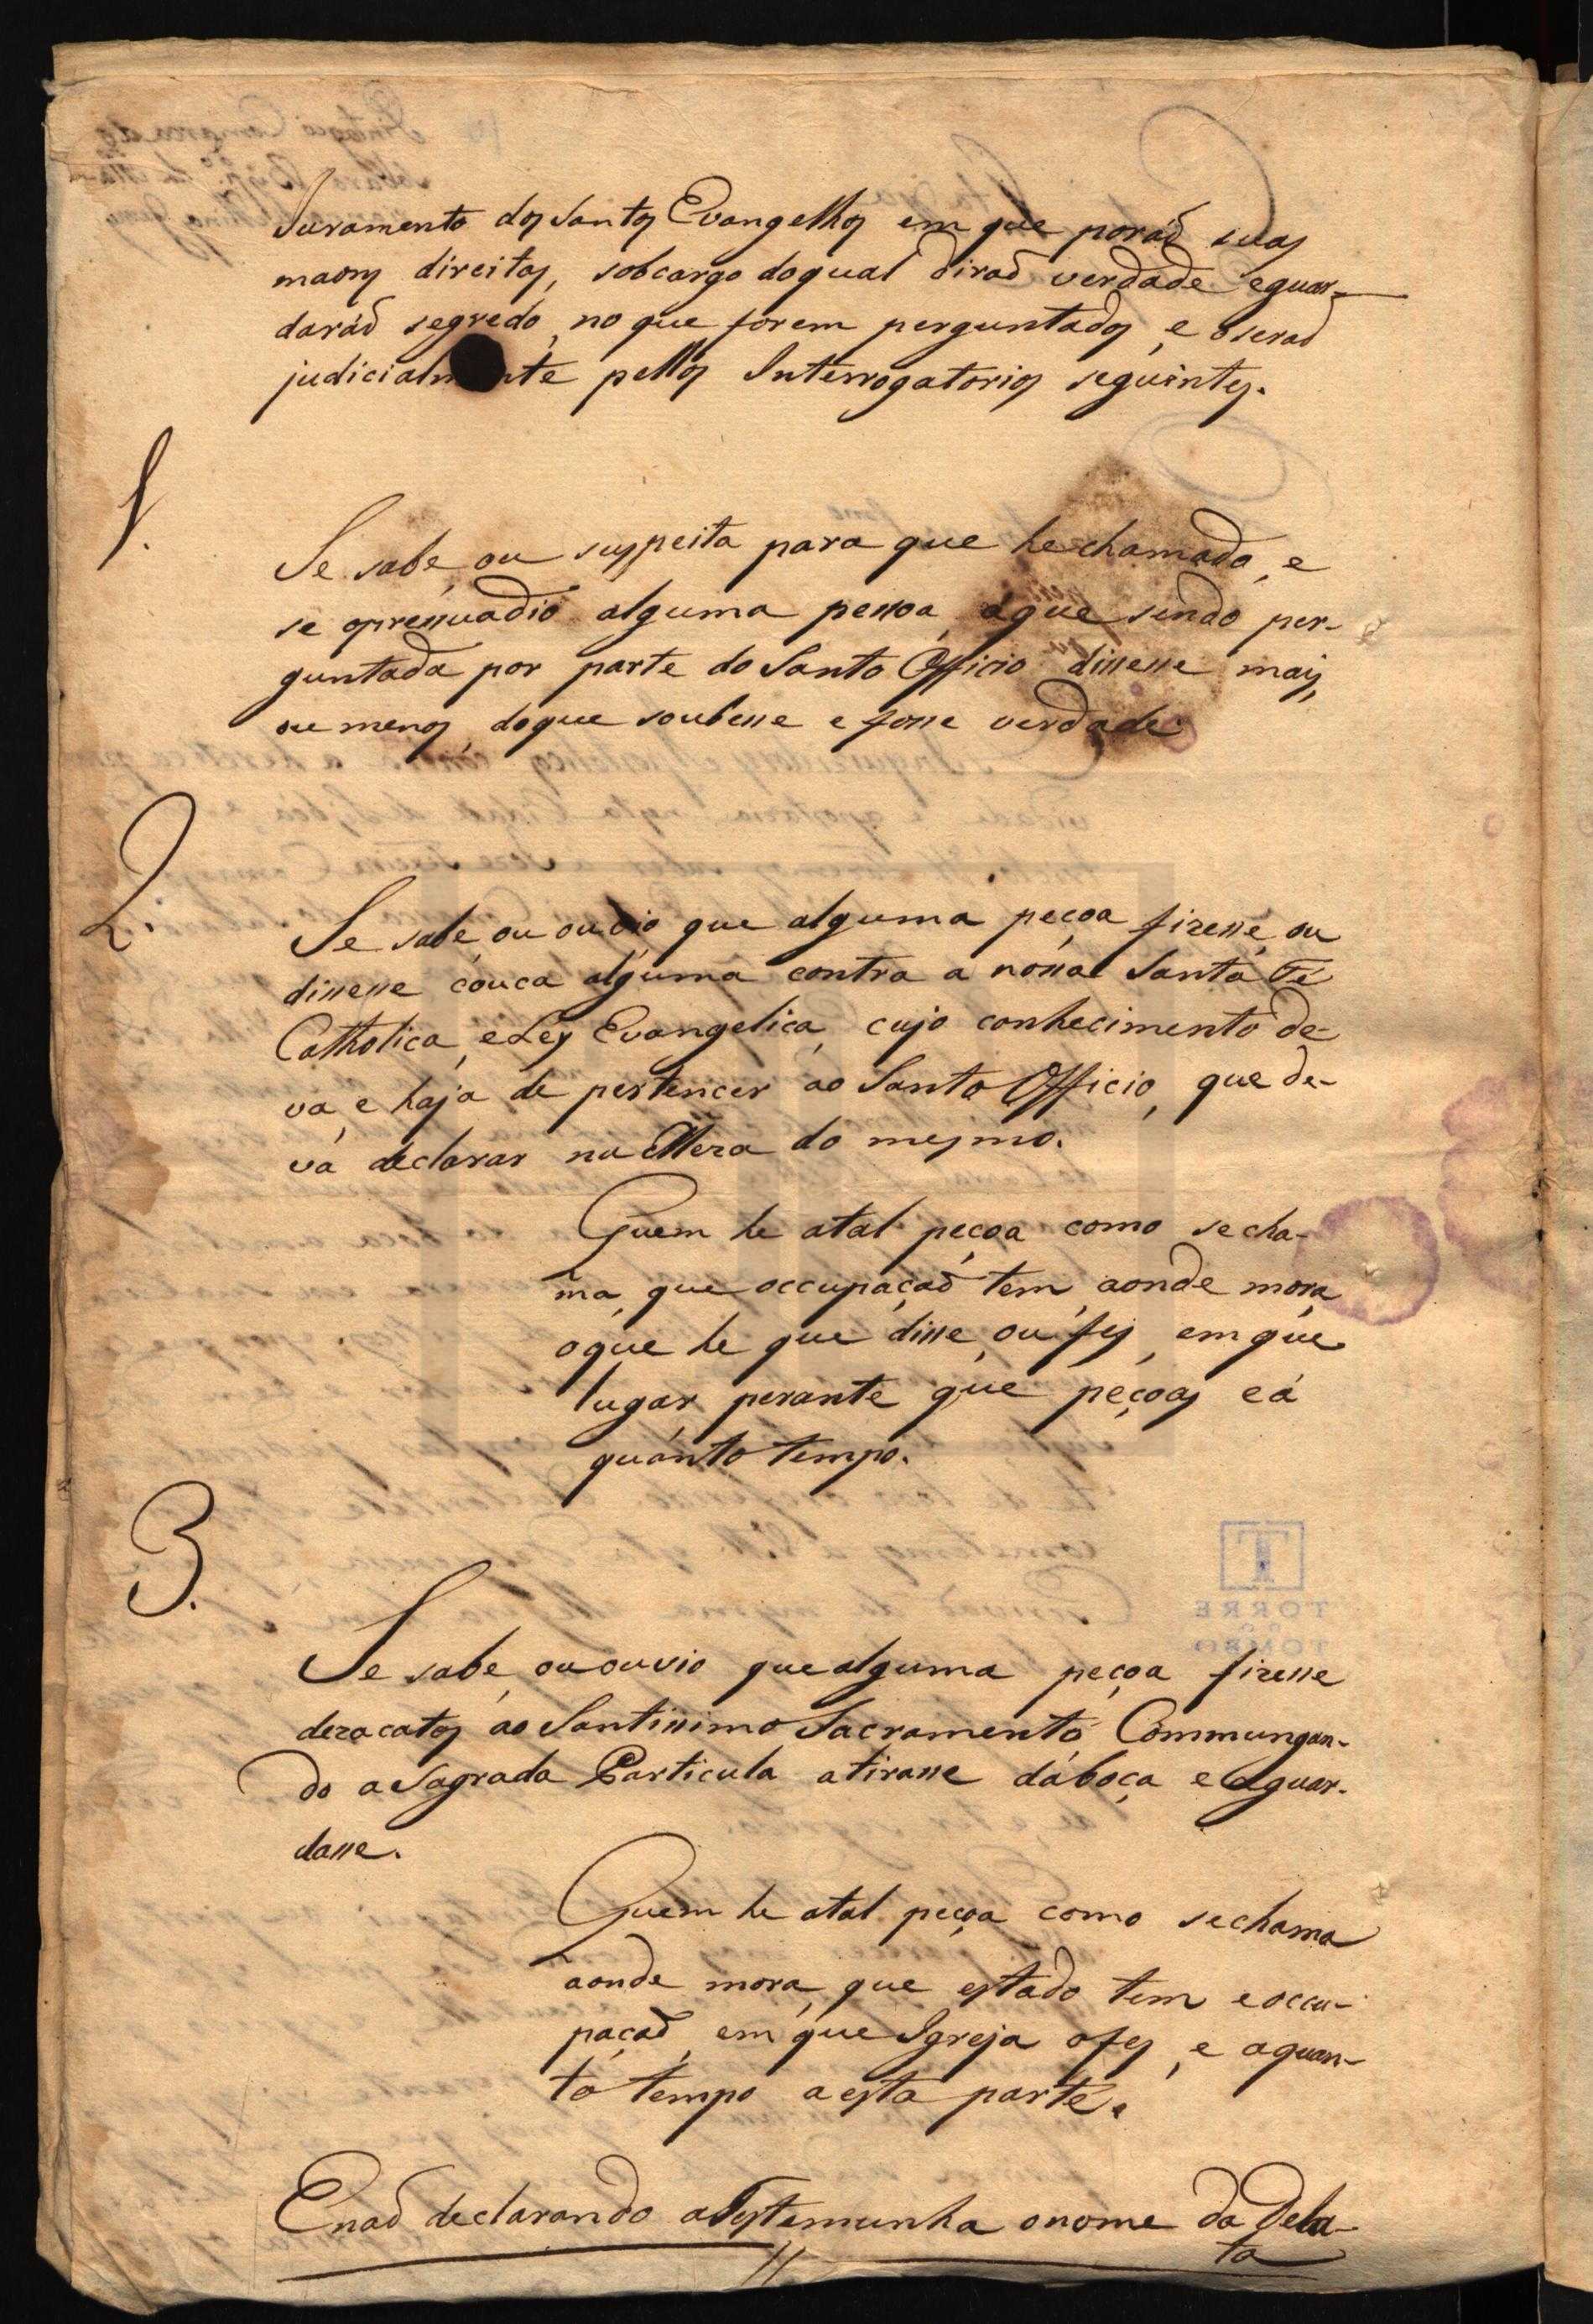 Juramento dos Santos Evangelhos em que poraõ suas
maons direitas, sobcargo doqual diraõ verdade eguar-
daraõ segredo, no que forem perguntados, e oseraõ
judicialmente pellos Interrogatorios seguintes.
1.
Se sabe, ou suspeita para que he chamado, e
se opressuadio alguma pessoa, aque sendo per-
guntada por parte do Santo Officio dissesse mais,
ou menos, doque soubesse e fosse verdade.
2.
Se sabe, ou ouvio que alguma peçoa fizesse, ou
dissesse couca alguma contra a nossa Santa Fé
Catholica, eLey Evangelica, cujo conhecimento de-
va, e haja de pertencer ao Santo Officio, que de-
va declarar na Meza do mesmo.
Quem he atal peçoa como secha-
ma, que occupaçaõ tem, aonde mora
oque he que disse, ou fes, emque
lugar, perante que peçoas eá
quanto tempo.
3.
Se sabe, ououvio quealguma peçoa fizesse
dezacatos ao Santissimo Sacramento Commungan-
do aSagrada Particula atirasse dáboca eaguar-
dasse.
Quem he atal peçoa como sechama
aonde mora, que estado tem eoccu-
paçaõ, em que Igreja ofes, e aquan-
to tempo aesta parte.
Enaõ declarando aTestemunha onome da Dela-
ta
TORRE
DO
TOMBO